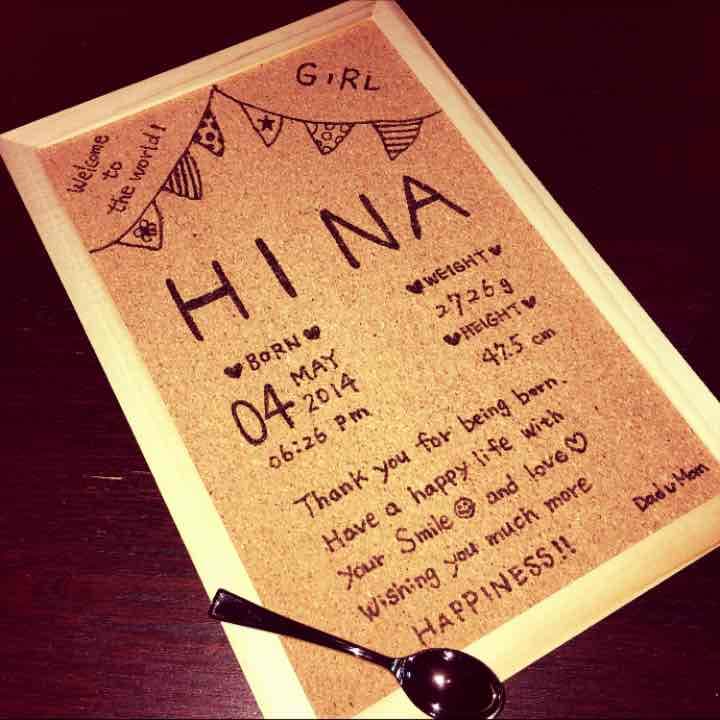 GIRL
Welcome
to
the world!
HINA
♥BORN♥
04 MAY
2014
06:26 pm
♥WEIGHT♥
2726g
♥HEIGHT♥
47.5 cm
Thank you for being born.
Have a happy life with
your Smile☺ and love♡
Wishing you much more
HAPPINESS!!
Dad & Mom